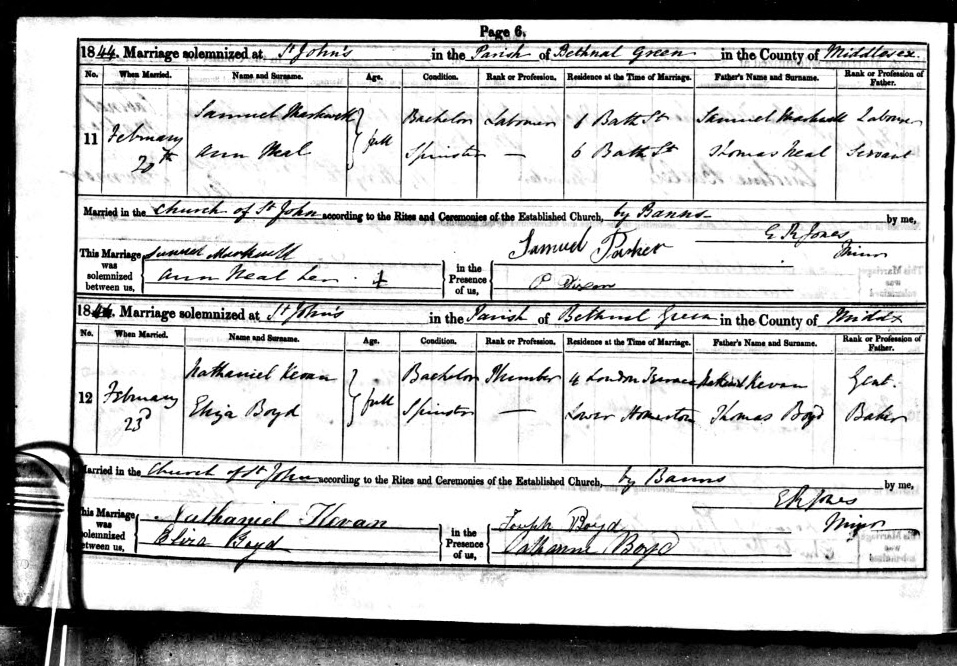 Page 6.
1844. Marriage solemnized at St John's in the Parish of Bethnal Green in the County of Middlesex
No. When Married. Name and Surname. Age. Condition. Rank or Profession. Residence at the Time of Marriage. Father's Name and Surname. Rank or Profession of Father.
11 February 20th Samuel Markwell full Bachelor Labourer 6 Bath St Samuel Markwell Labourer
Ann Neal Spinster — 6 Bath St Thomas Neal Servant
Married in the Church of St John according to the Rites and Ceremonies of the Established Church, by Banns by me,
E R Jones
This Marriage was solemnized between us, Samuel Markwell in the Presence of us, Samuel Parker
Ann Neal her + C Dixon
1844. Marriage solemnized at St John's in the Parish of Bethnal Green in the County of Middx
No. When Married. Name and Surname. Age. Condition. Rank or Profession. Residence at the Time of Marriage. Father's Name and Surname. Rank or Profession of Father.
12 February 23d Nathaniel Kevan full Bachelor Plumber 4 London Terrace Kevan Gent.
Eliza Boyd Spinster — Lower Homerton Thomas Boyd Baker
Married in the Church of St John according to the Rites and Ceremonies of the Established Church, by Banns by me,
E R Jones
This Marriage was solemnized between us, Nathaniel Kevan in the Presence of us, Joseph Boyd
Eliza Boyd Catharine Boyd